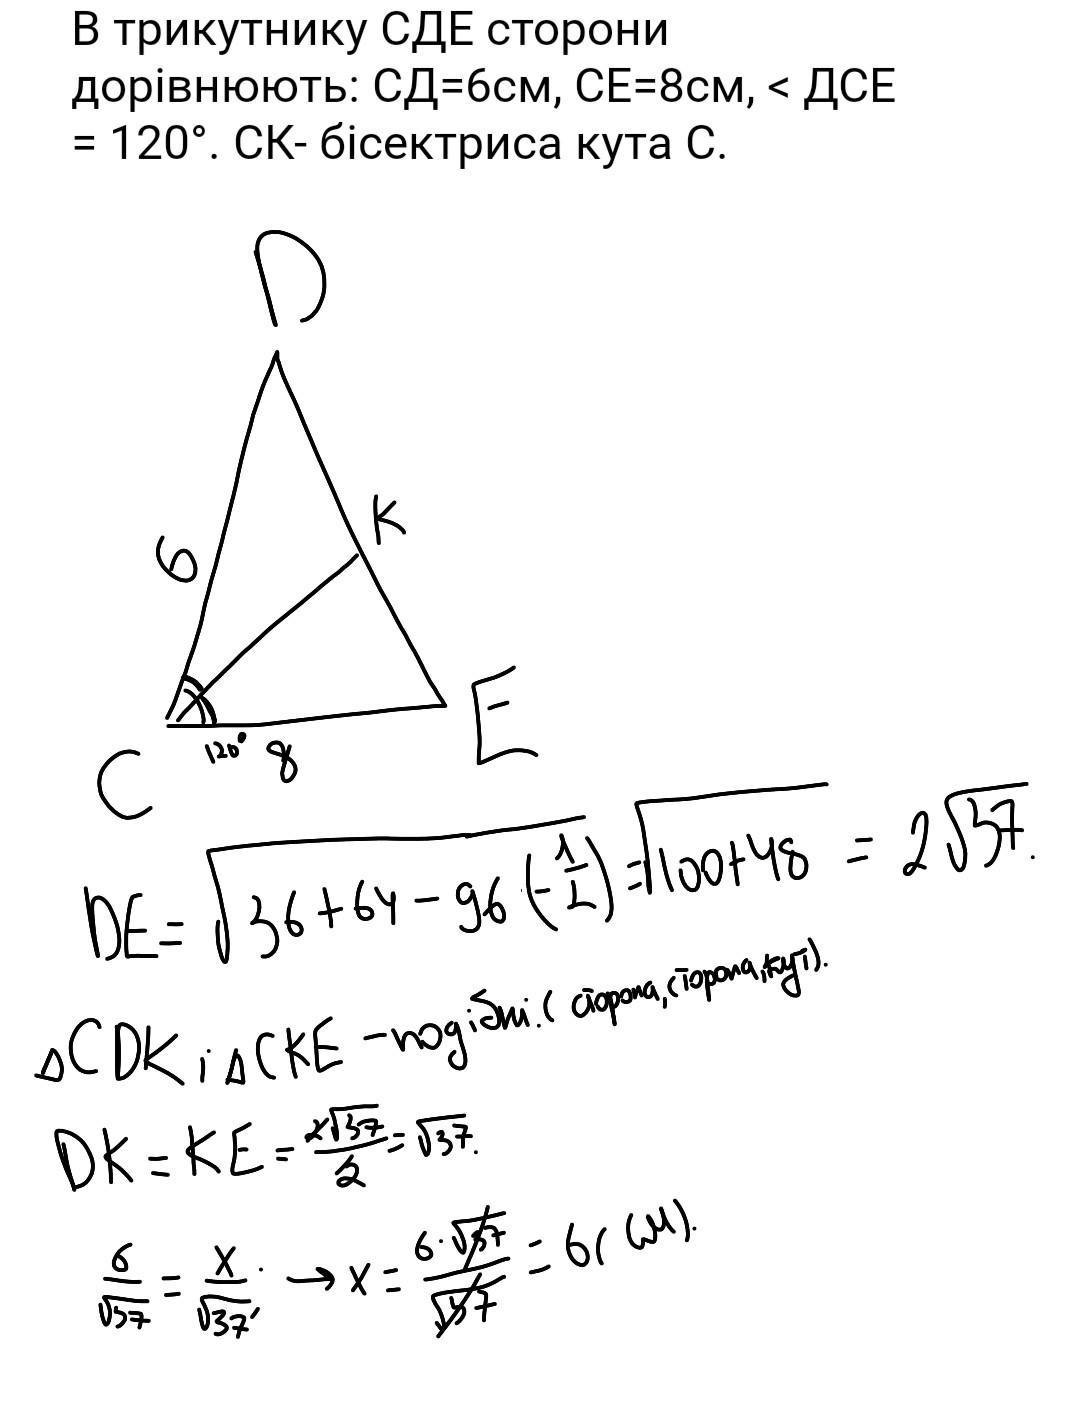 В трикутнику СДЕ сторони
дорівнюють: СД=6см, СЕ=8см, < ДСЕ
= 120°. СК- бісектриса кута С.
D
K
6
E
120°
8
C
DE = √36+64-96(-1/2) = √100+48 = 2√37.
△CDK і △CKE - подібні. (сторона, сторона, кут).
DK = KE = 2√37/2 = √37.
6/√37 = x/√37. → x = 6·√37/√37 = 6 (см).